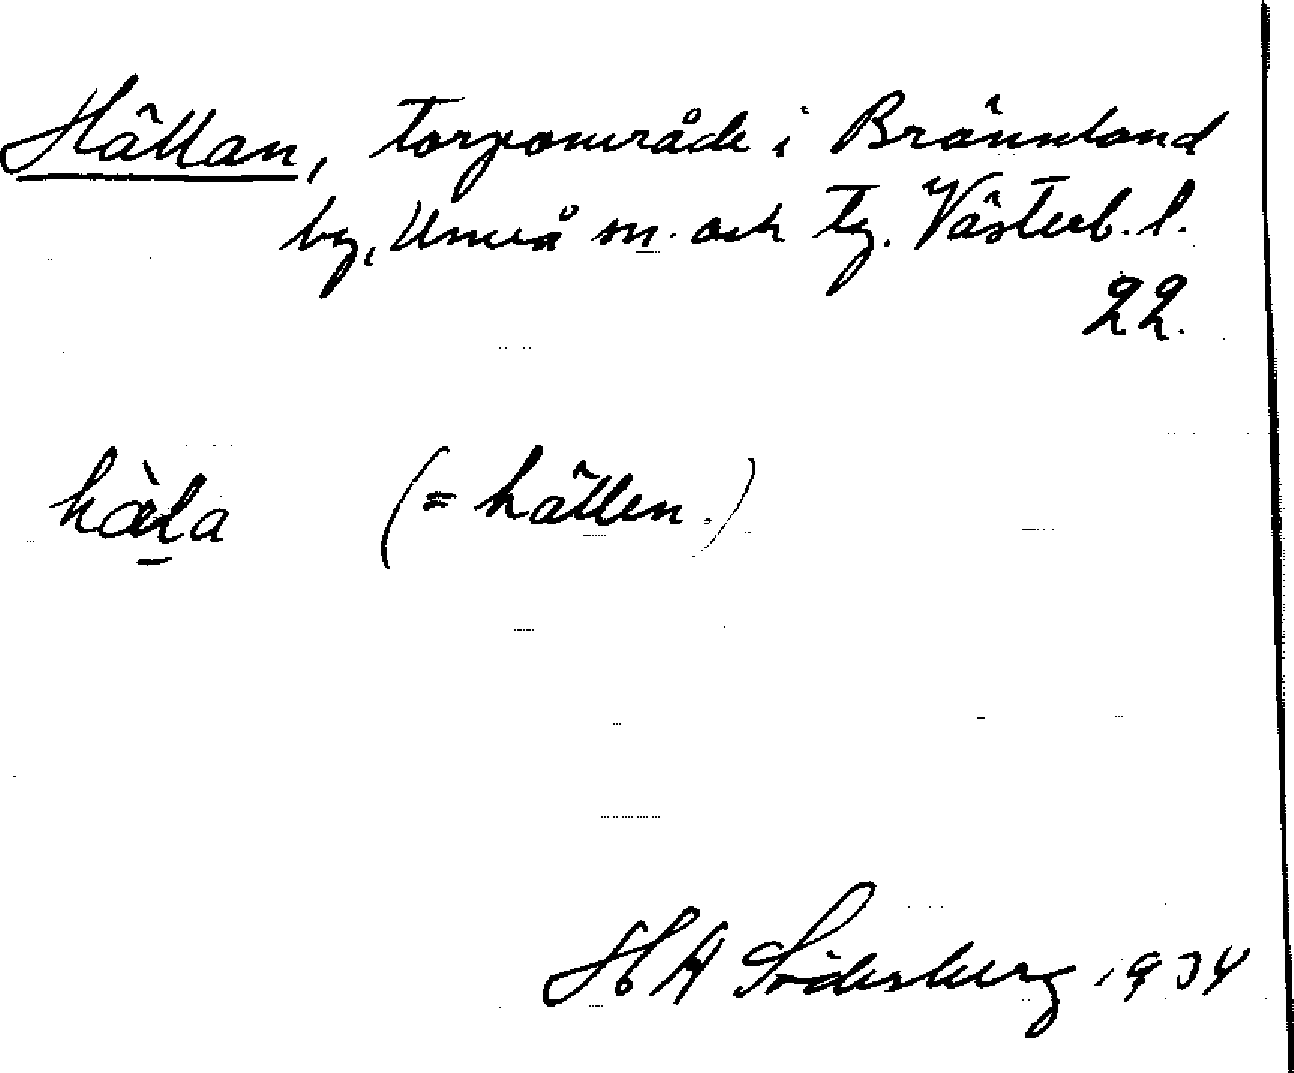 Hällan, torpområde i Brännland
by, Umeå sn. och tg. Västerb. l.
22.
hä̀la (= hällen.)
H A Söderberg 1934